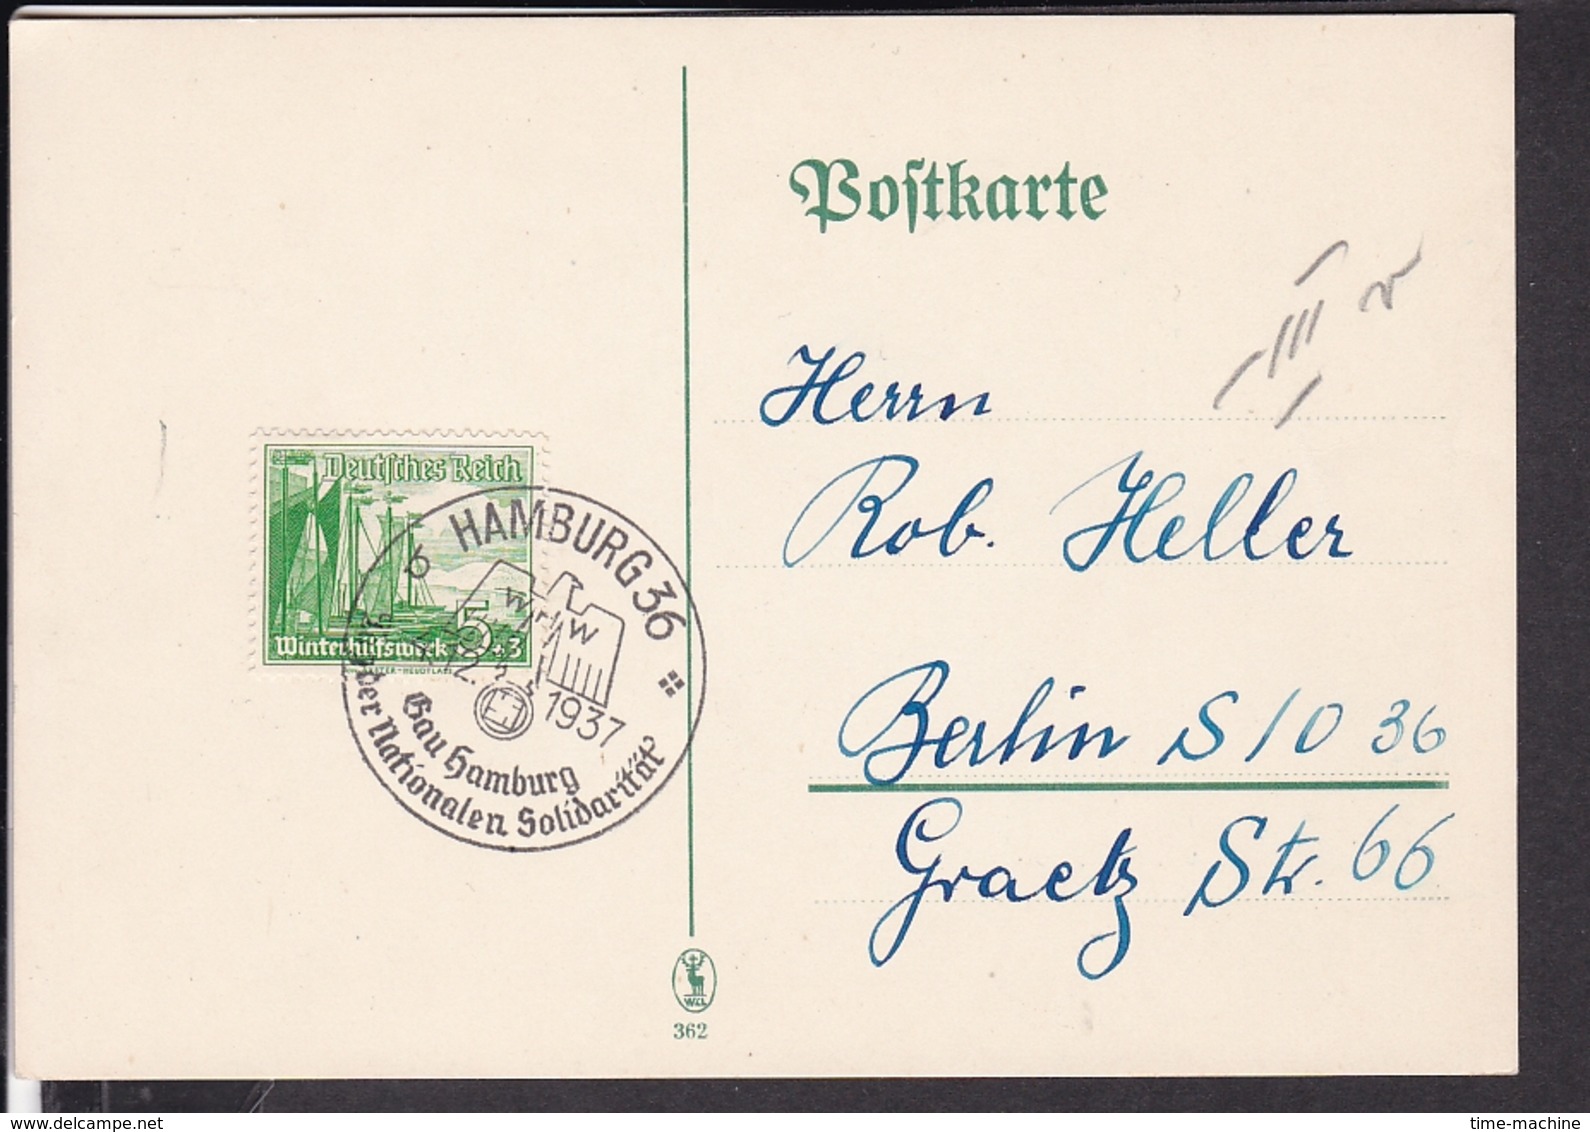 Poſtkarte
Herrn
Rob. Heller
Berlin S/O 36
Graetz Str. 66
Deutſches Reich
Winterhilfswerk 5+3
b HAMBURG 36
WHW
12. 1937
Gau Hamburg
der Nationalen Solidarität
362
www.delcampe.net
time-machine